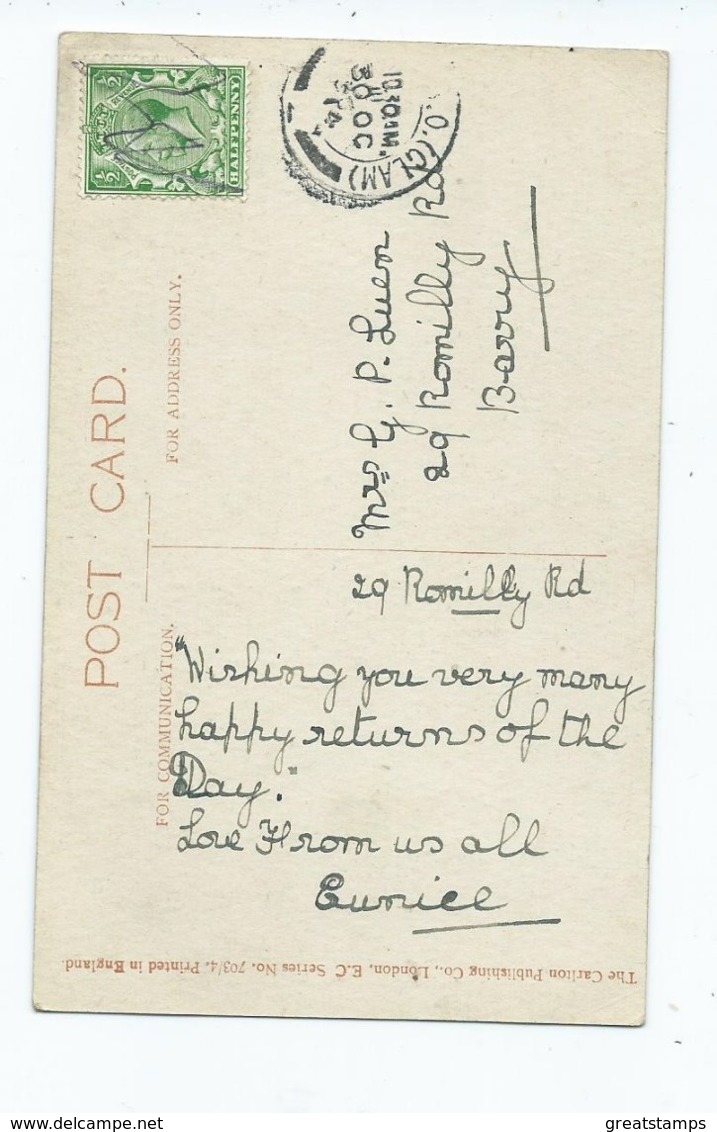 POST CARD.
FOR ADDRESS ONLY.
HALFPENNY
O. (GLAM)
30 OC
Mrs G. P. Luen
29 Romilly Rd
Barry
FOR COMMUNICATION.
29 Romilly Rd
"Wishing you very many
happy returns of the
Day."
Love From us all
Eunice
The Carlton Publishing Co., London, E.C. Series No. 703/4. Printed in England.
greatstamps